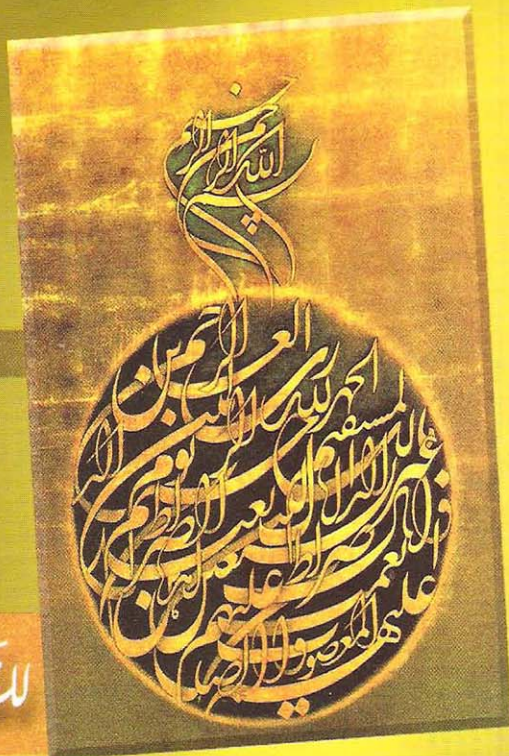 بسم الله الرحمن الرحيم
الحمد لله رب العالمين الرحمن الرحيم مالك يوم الدين
اياك نعبد و اياك نستعين اهدنا الصراط المستقيم
صراط الذين انعمت عليهم غير المغضوب عليهم ولا الضالين